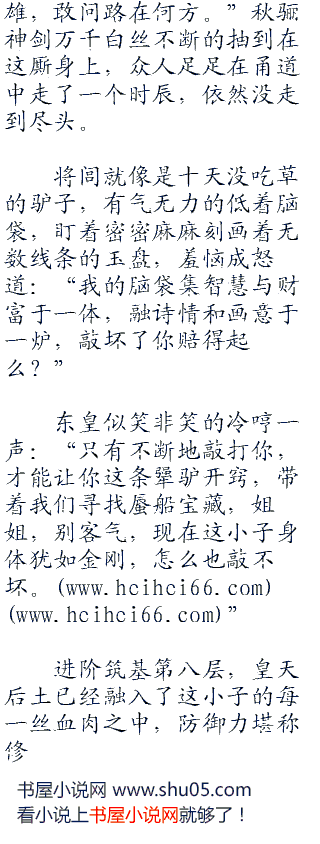 雄，敢问路在何方。”秋骊
神剑万千白丝不断的抽到在
这厮身上，众人足足在甬道
中走了一个时辰，依然没走
到尽头。
将闾就像是十天没吃草
的驴子，有气无力的低着脑
袋，盯着密密麻麻刻画着无
数线条的玉盘，羞恼成怒
道：“我的脑袋集智慧与财
富于一体，融诗情和画意于
一炉，敲坏了你赔得起
么？”
东皇似笑非笑的冷哼一
声：“只有不断地敲打你，
才能让你这条犟驴开窍，带
着我们寻找蜃船宝藏，姐
姐，别客气，现在这小子身
体犹如金刚，怎么也敲不
坏。(www.hcihci66.com)
(www.hcihci66.com)”
进阶筑基第八层，皇天
后土已经融入了这小子的每
一丝血肉之中，防御力堪称
修
书屋小说网 www.shu05.com
看小说上书屋小说网就够了！